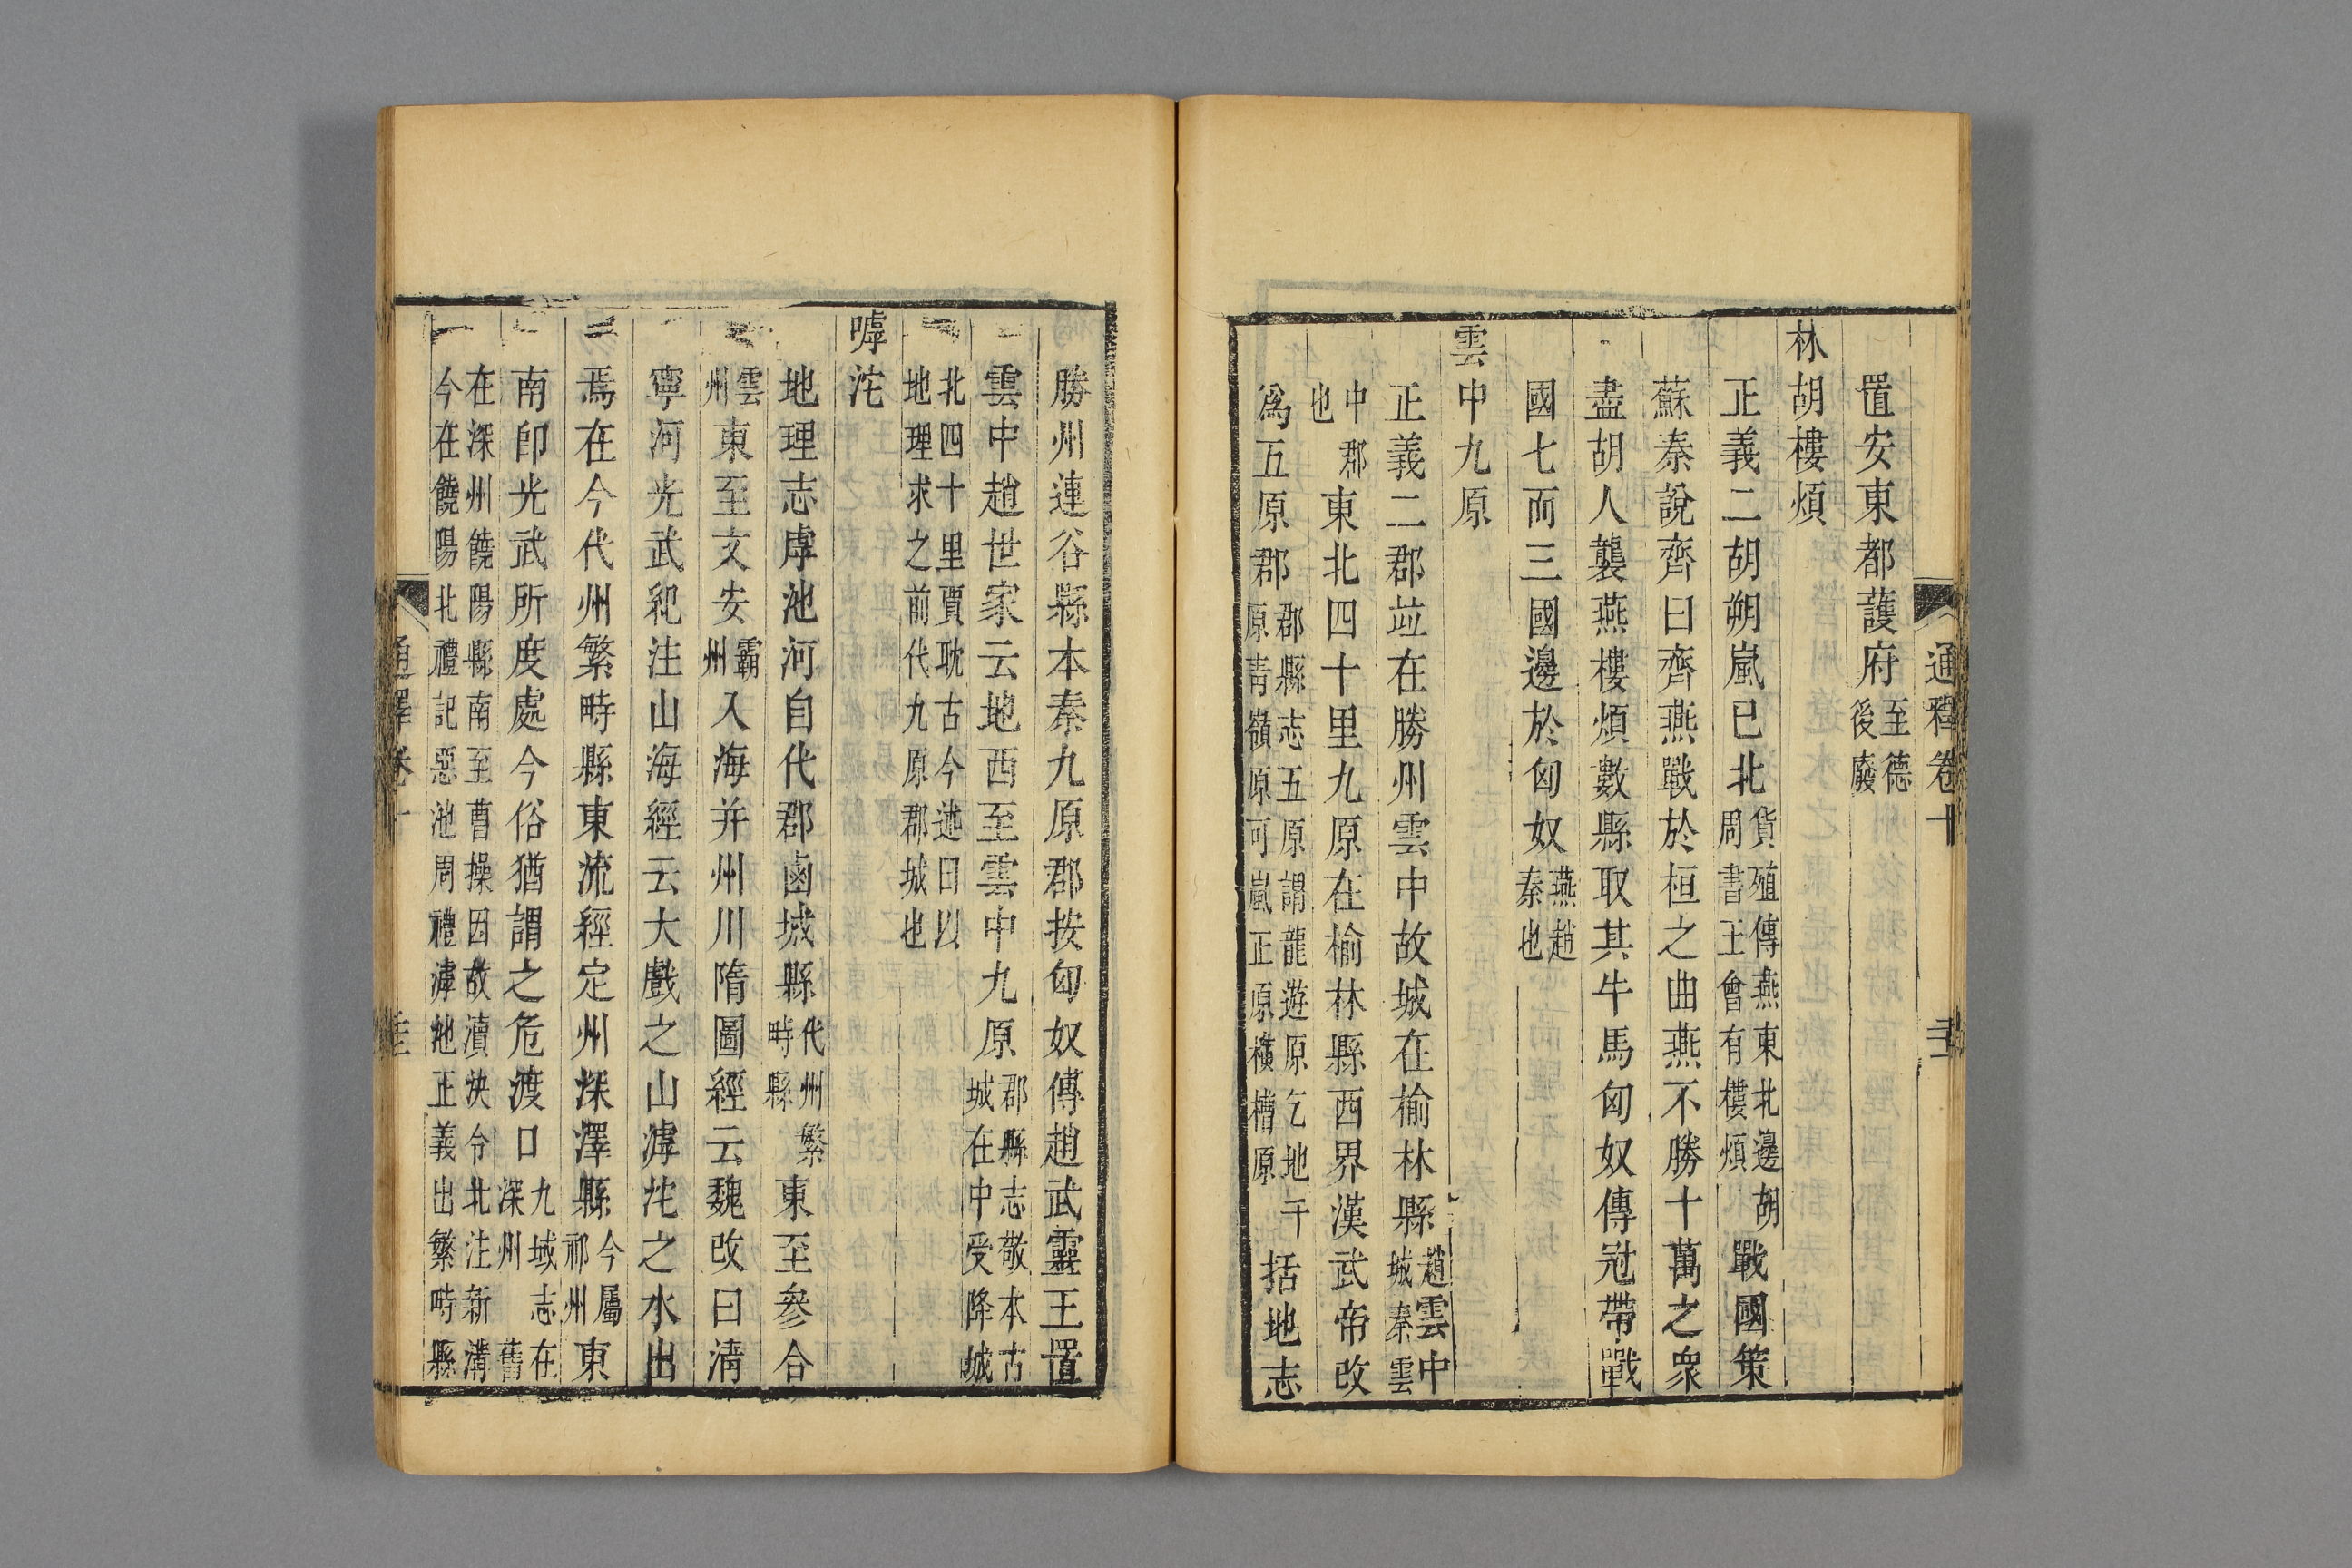 通釋卷十
置安東都護府至德後廢
林胡樓煩
正義二胡朔嵐已北貨殖傳燕東北邊胡周書王會有樓煩戰國策
蘇秦說齊曰齊燕戰於桓之曲燕不勝十萬之衆
盡胡人襲燕樓煩數縣取其牛馬匈奴傳冠帶戰
國七而三國邊於匈奴燕趙秦也
雲中九原
正義二郡竝在勝州雲中故城在榆林縣趙雲中城秦雲
中郡也東北四十里九原在榆林縣西界漢武帝改
爲五原郡郡縣志五原謂龍遊原乞地干原靑嶺原可嵐正原橫槽原括地志
勝州連谷縣本秦九原郡按匈奴傳趙武靈王置
雲中趙世家云地西至雲中九原郡縣志敬本古城在中受降城
北四十里賈耽古今述曰以地理求之前代九原郡城也
嘑沱
地理志虖池河自代郡鹵城縣代州繁畤縣東至參合
雲州東至文安霸州入海并州川隋圖經云魏改曰淸
寧河光武紀注山海經云大戲之山滹沱之水出
焉在今代州繁畤縣東流經定州深澤縣今屬祁州東
南卽光武所度處今俗猶謂之危渡口九域志在深州舊
在深州饒陽縣南至曹操因故瀆決令北注新溝今在饒陽北禮記惡池周禮滹池正義出繁畤縣
通釋卷十